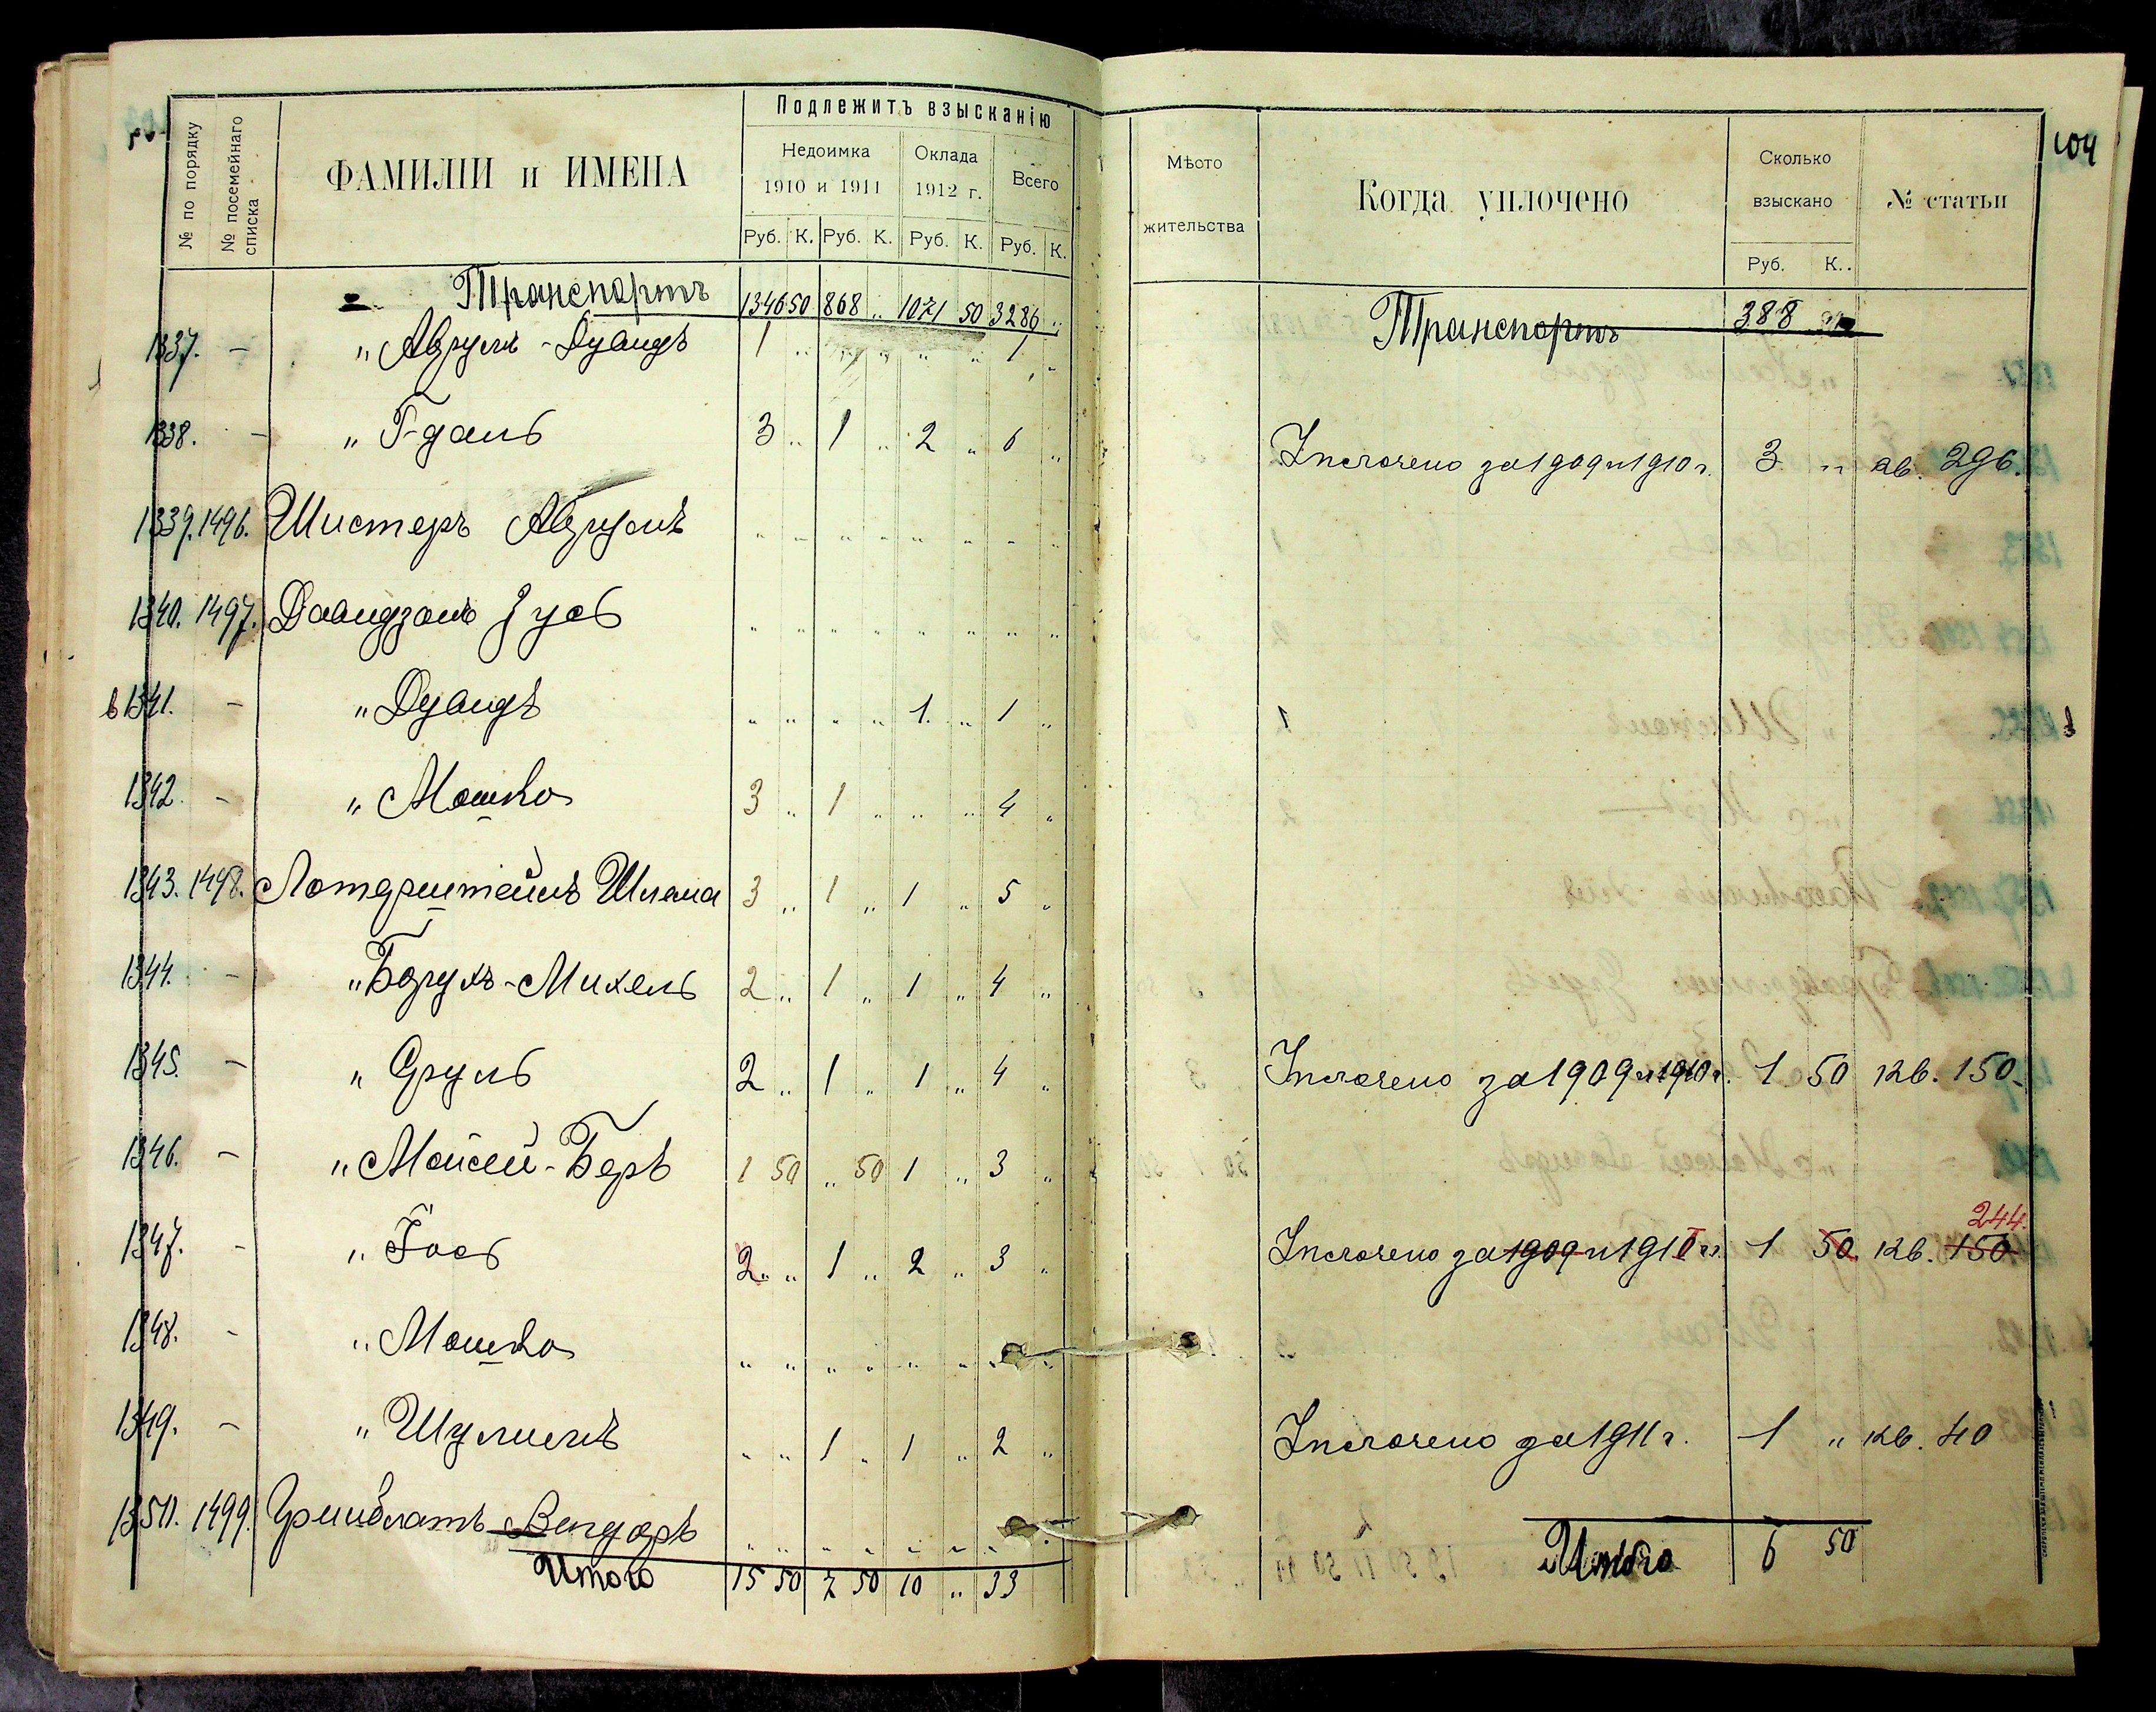 104
№ по порядку
№ посемейнаго списка
ФАМИЛІИ и ИМЕНА
Подлежитъ взысканію
Недоимка 1910 и 1911
Оклада 1912 г.
Всего
Руб. К. Руб. К. Руб. К. Руб. К.
Мѣсто жительства
Когда уплочено
Сколько взыскано
Руб. К.
№ статьи
Транспортъ 1346 50 868 " 1071 50 3286 " Транспортъ 388
1337. - " Аврумъ-Дувидъ 1 " " " " " 1 "
1338. - " Г-даль 3 " 1 " 2 " 6 " Уплочено за 1909 и 1910 г. 3 " кв. 296.
1339. 1496. Шистеръ Аврумъ " " " " " " " "
1340. 1497. Давидзонъ Зусь " " " " " " " "
в 1341. - " Дувидъ " " " " 1. " 1 "
1342. - " Мошко 3 " 1 " " " 4 "
1343. 1498. Лотерштейнъ Шлема 3 " 1 " 1 " 5 "
1344. - " Борухъ-Михель 2 " 1 " 1 " 4 "
1345. - " Сруль 2 " 1 " 1 " 4 " Уплочено за 1909 и 1910 г. 1 50 кв. 150.
1346. - " Мойсей-Беръ 1 50 " 50 1 " 3 "
1347. - " Іось 2 " 1 " 2 " 3 " Уплочено за 1909 и 1910 г. 1 50 кв. 150 244.
1348. - " Мошко " " " " " " " "
1349. - " Шулимъ " " 1 " 1 " 2 " Уплочено за 1911 г. 1 " кв. 40
1350. 1499. Гринблатъ " " " " " " " "
Итого 15 50 7 50 10 " 33 Итого 6 50